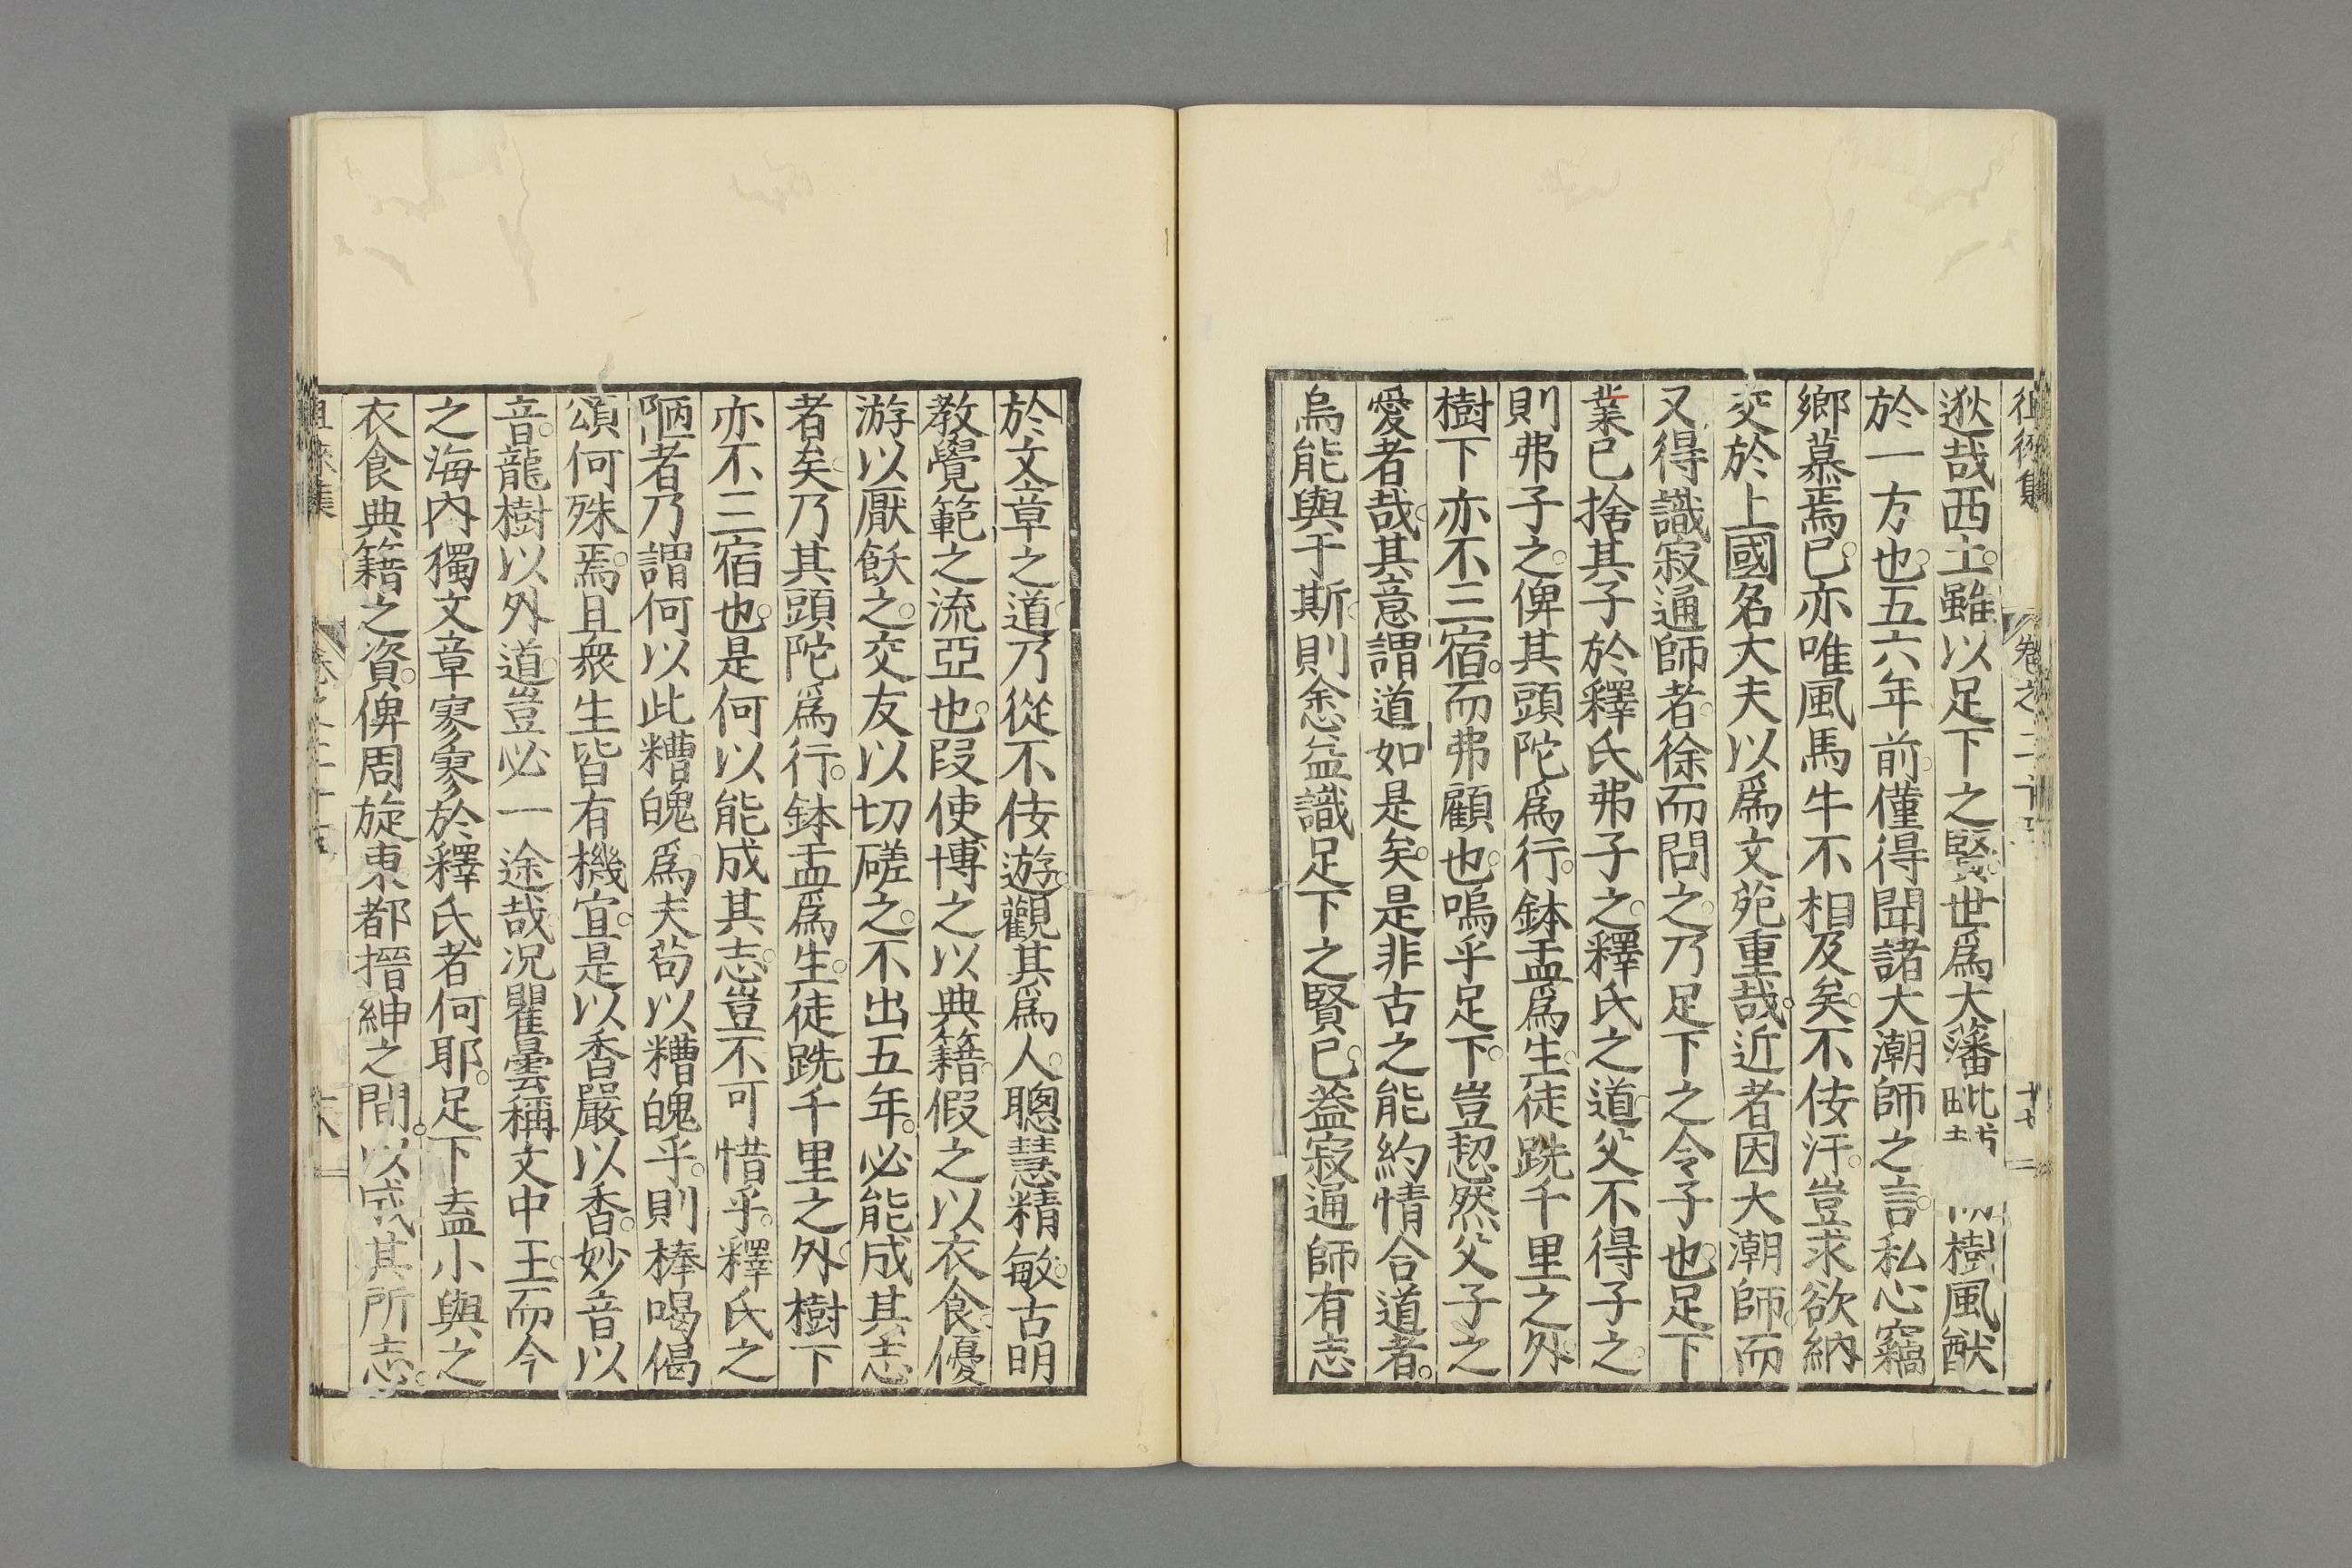 徂徠集 卷之二十五 十七
逖哉西土。雖以足下之賢。世爲大藩毗 樹風猷
於一方也。五六年前。僅得聞諸大潮師之言。私心竊
鄉慕焉。已亦唯風馬牛不相及矣。不佞汗。豈求欲納
交於上國名大夫以爲文苑重哉。近者因大潮師。而
又得識寂通師者。徐而問之。乃足下之令子也。足下
業已捨其子於釋氏弗子之。釋氏之道。父不得子之。
則弗子之。俾其頭陀爲行。鉢盂爲生。徒跣千里之外。
樹下亦不三宿。而弗顧也。嗚乎足下。豈恝然父子之
愛者哉。其意謂道如是矣。是非古之能約情合道者。
烏能與于斯。則悆益識足下之賢已。葢寂通師有志
於文章之道。乃從不佞遊。觀其爲人。聰慧精敏。古明
教覺範之流亞也。叚使博之以典籍。假之以衣食。優
游以厭飫之。交友以切磋之。不出五年。必能成其志
者矣。乃其頭陀爲行。鉢盂爲生。徒跣千里之外。樹下
亦不三宿也。是何以能成其志。豈不可惜乎。釋氏之
陋者乃謂何以此糟魄爲。夫茍以糟魄乎。則棒喝偈
頌何殊焉。且衆生皆有機宜。是以香嚴以香。妙音以
音。龍樹以外道。豈必一途哉。況瞿曇稱文中王。而今
之海內獨文章寥寥於釋氏者何耶。足下盍小與之
衣食典籍之資。俾周旋東都搢紳之間。以成其所志。
徂徠集 卷之二十五 十八